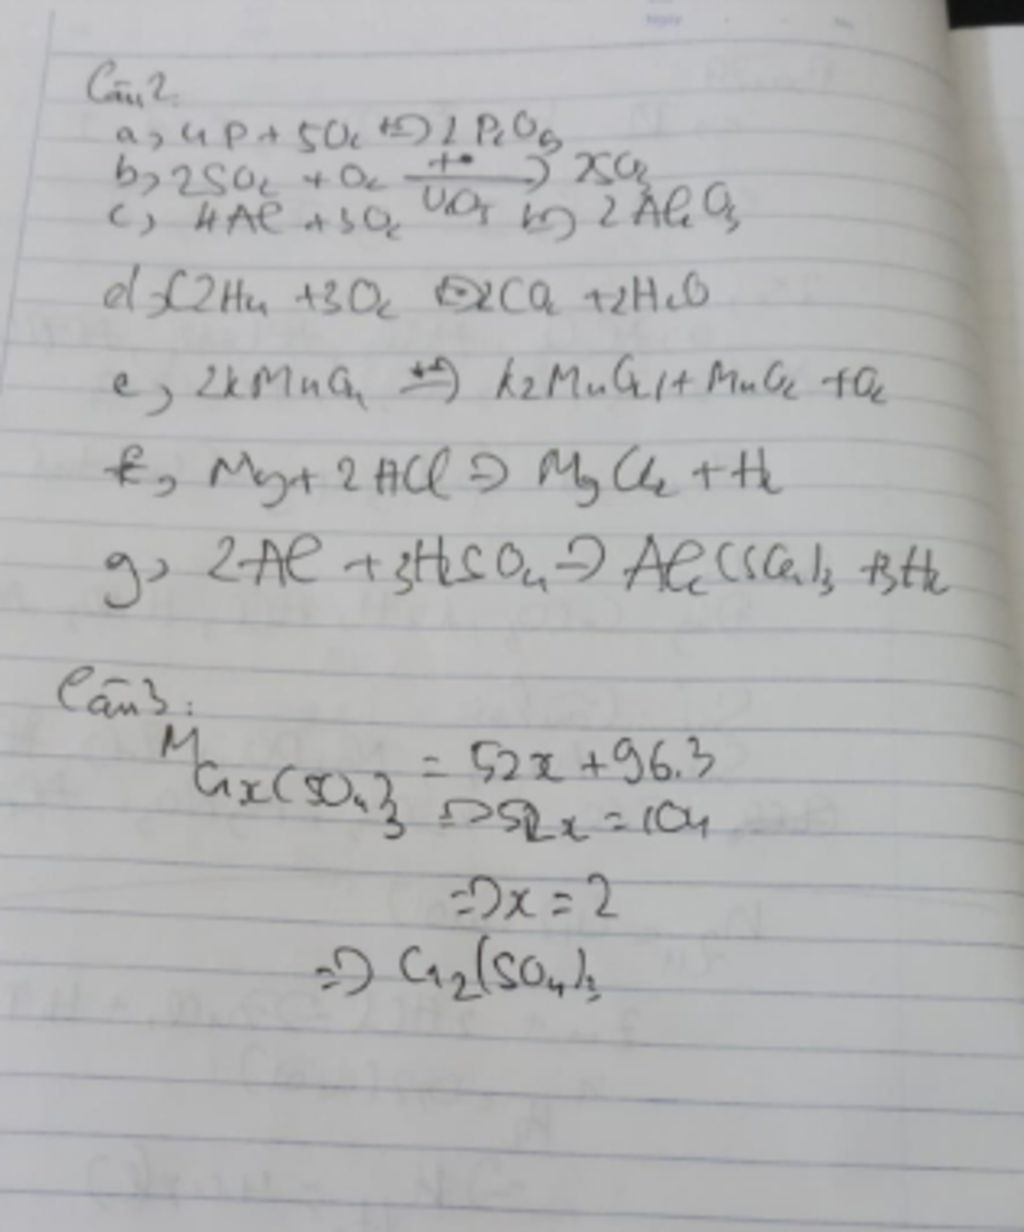 Câu 2:
a, 4P + 5O2 t°⇒ 2P2O5
b, 2SO2 + O2 t°→ V2O5 2SO3
c, 4Al + 3O2 t°⇒ 2Al2O3
d, C2H4 + 3O2 t°⇒ 2CO2 + 2H2O
e, 2KMnO4 t°⇒ K2MnO4 + MnO2 + O2
f, Mg + 2HCl ⇒ MgCl2 + H2
g, 2Al + 3H2SO4 ⇒ Al2(SO4)3 + 3H2
Câu 3:
M Crx(SO4)3 = 52x + 96.3
⇒ 52x = 104
⇒ x = 2
⇒ Cr2(SO4)3